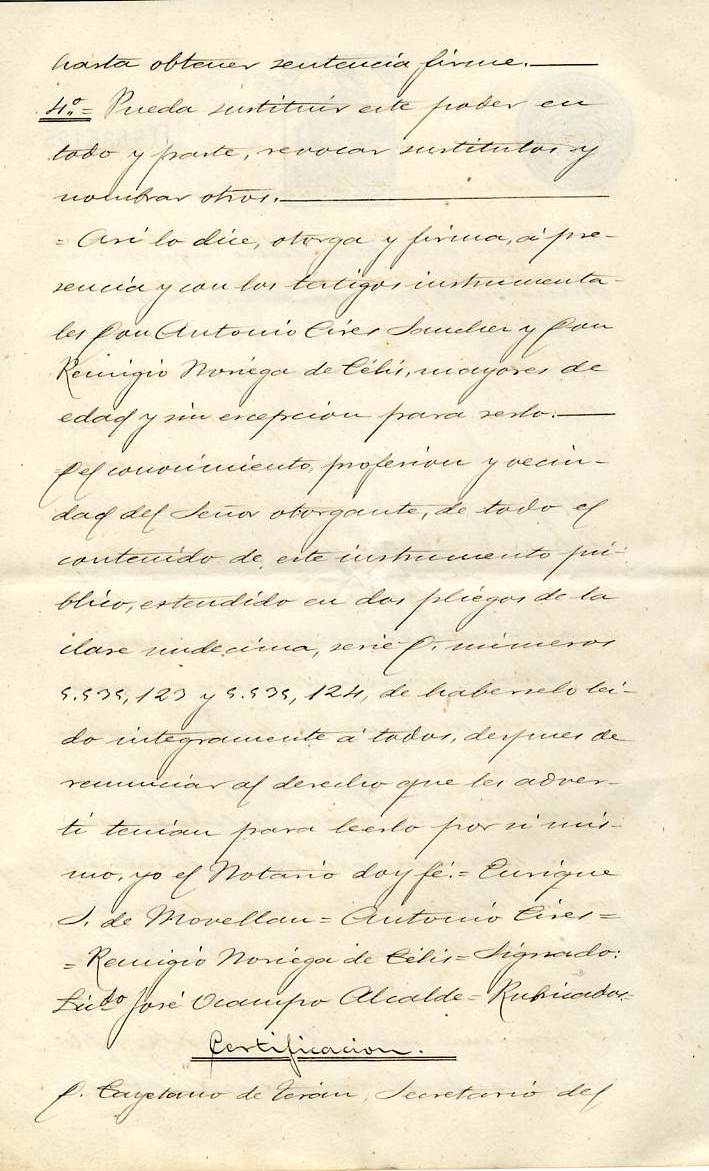 hasta obtener sentencia firme.
4.º = Pueda sustituir este poder en
todo y parte, revocar sustitutos y
nombrar otros.
= Asi lo dice, otorga y firma, á pre-
sencia y con los testigos instrumenta-
les Don Antonio Cires Sanchez y Don
Remigio Noriega de Célis, mayores de
edad y sin escepcion para serlo.
Del conocimiento, profesion y vecin-
dad del Señor otorgante, de todo el
contenido de este instrumento pú-
blico, estendido en dos pliegos de la
clase undecima, serie C. números
123 y 124, de haberselo lei-
do integramente á todos, despues de
renunciar al derecho que les adver-
tí tenian para leerlo por si mis-
mo, yo el Notario doy fé. = Enrique
S. de Movellan = Antonio Cires =
= Remigio Noriega de Célis = Signado:
Licdo José Ocampo Alcalde = Rubricados =
Certificacion.
D. Cayetano de Terán, Secretario del